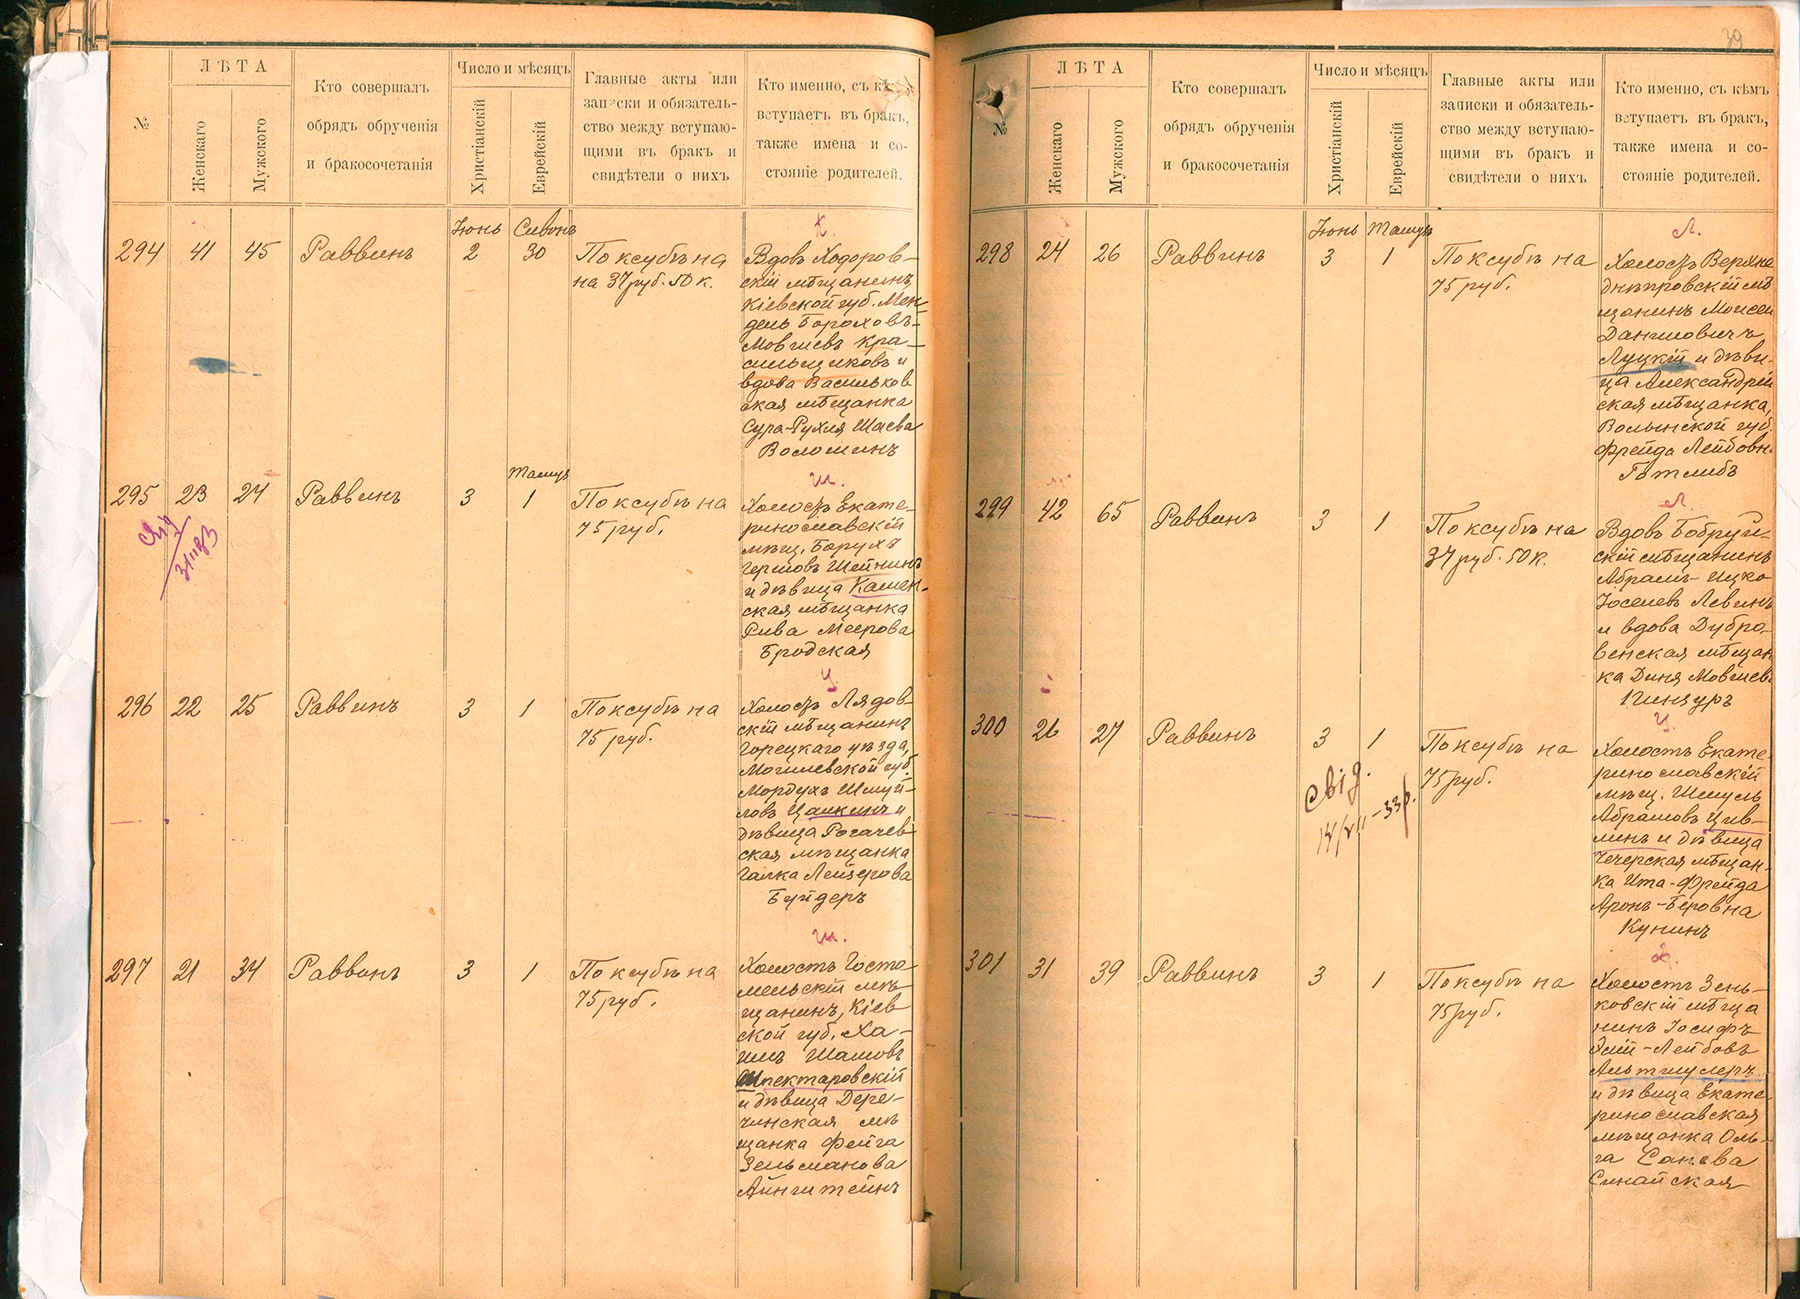 ЛѢТА
Число и мѣсяцъ
№
Женскаго
Мужского
Кто совершалъ
обрядъ обрученія
и бракосочетанія
Христіанскій
Еврейскій
Главные акты или
записки и обязатель-
ство между вступаю-
щими въ бракъ и
свидѣтели о нихъ
Кто именно, съ кѣмъ
вступаетъ въ бракъ,
также имена и со-
стояніе родителей.
Іюнь Сивонъ
К.
294 41 45 Раввинъ 2 30
По ксубѣ на
на 37 руб. 50 к.
Вдовъ Ходоров-
скій мѣщанинъ,
Кіевской губ. Мен-
дель Бороховъ-
Мовшевъ Кра-
сильщиковъ и
вдова Васильков
ская мѣщанка
Сура-Рухля Шаева
Волошинъ
Тамузъ
Ш.
295 23 24 Раввинъ 3 1
По ксубѣ на
75 руб.
Холостъ Екате-
ринославскій
мѣщ. Борухъ
Гершовъ Шейнинъ
и дѣвица Камен-
ская мѣщанка
Рива Меерова
Бродская
Ц.
296 22 25 Раввинъ 3 1
По ксубѣ на
75 руб.
Холостъ Лядов-
скій мѣщанинъ
Горецкаго уѣзда,
Могилевской губ.
Мордухъ Шмуй-
ловъ Цалкинъ и
дѣвица Рогачев
ская мѣщанка
Галка Лейзерова
Бейдеръ
Ш.
297 21 34 Раввинъ 3 1
По ксубѣ на
75 руб.
Холостъ Госто
мельскій мѣ-
щанинъ, Кіев
ской губ. Ха-
имъ
Шпектаровскій
и дѣвица Дере-
чинская мѣ
щанка Фейга
Зельманова
Айнштейнъ
39
ЛѢТА
Число и мѣсяцъ
№
Женскаго
Мужского
Кто совершалъ
обрядъ обрученія
и бракосочетанія
Христіанскій
Еврейскій
Главные акты или
записки и обязатель-
ство между вступаю-
щими въ бракъ и
свидѣтели о нихъ
Кто именно, съ кѣмъ
вступаетъ въ бракъ,
также имена и со-
стояніе родителей.
Іюнь Тамузъ
Л.
298 24 26 Раввинъ 3 1
По ксубѣ на
75 руб.
Холостъ Верхне
днѣпровскій мѣ
щанинъ Моисей
Даниловичъ
Луцкій и дѣви-
ца Александрій
ская мѣщанка,
Волынской губ.
Фрейда Лейбовн.
Готлибъ
Л.
299 42 65 Раввинъ 3 1
По ксубѣ на
37 руб. 50 к.
Вдовъ Бобруй-
скій мѣщанинъ
Абрамъ-Ицко
Іоселевъ Левинъ
и вдова Дубро-
венская мѣщан
ка Диня Мовшев.
Гинзуръ
Ц.
300 26 27 Раввинъ 3 1
По ксубѣ на
75 руб.
Свід.
14/VII-33р.
Холостъ Екате-
ринославскій
мѣщ. Шмуль
Абрамовъ Цив-
линъ и дѣвица
Чечерская мѣщан-
ка Ита-Фрейда
Аронъ-Беровна
Кунинъ
А.
301 31 39 Раввинъ 3 1
По ксубѣ на
75 руб.
Холостъ Зень-
ковскій мѣща
нинъ Іосифъ
Элій-Лейбовъ
Альтшулеръ
и дѣвица Екате-
ринославская
мѣщанка Оль-
га
Синайская